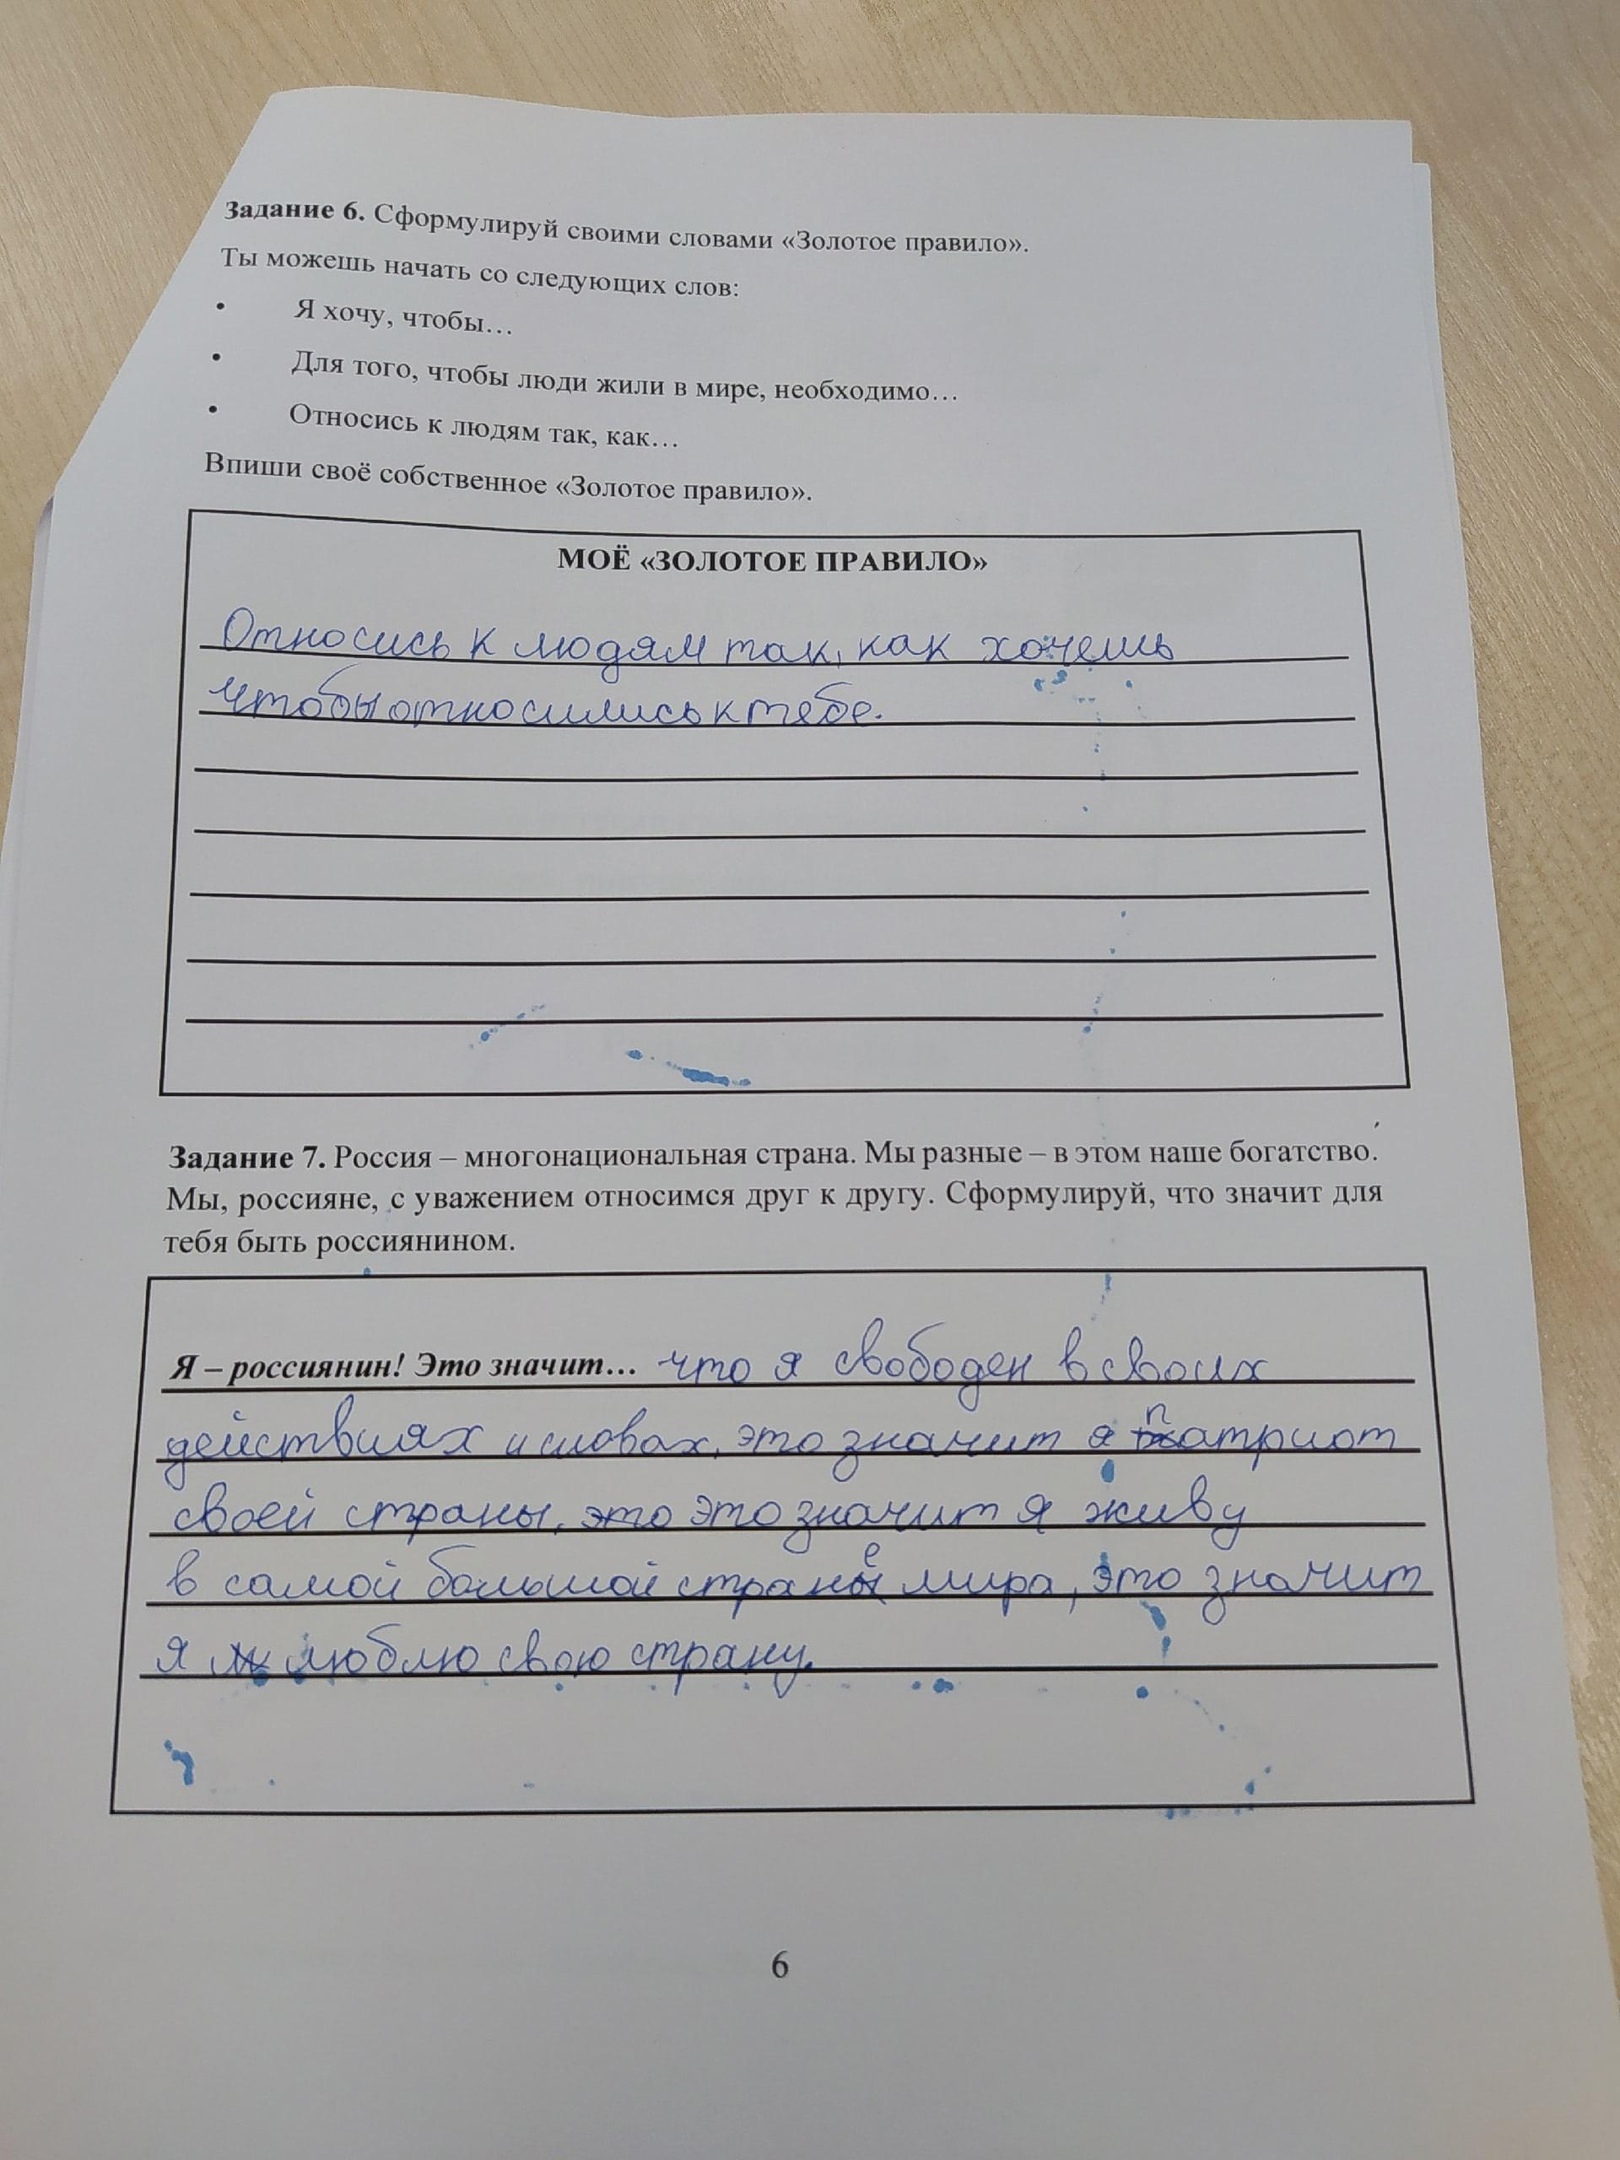 Задание 6. Сформулируй своими словами «Золотое правило».
Ты можешь начать со следующих слов:
• Я хочу, чтобы…
• Для того, чтобы люди жили в мире, необходимо…
• Относись к людям так, как…
Впиши своё собственное «Золотое правило».
МОЁ «ЗОЛОТОЕ ПРАВИЛО»
Относись к людям так, как хочешь
чтобы относились к тебе.
Задание 7. Россия – многонациональная страна. Мы разные – в этом наше богатство.
Мы, россияне, с уважением относимся друг к другу. Сформулируй, что значит для
тебя быть россиянином.
Я – россиянин! Это значит… что я свободен в своих
действиях и словах, это значит я патриот
своей страны, это это значит я живу
в самой большой стране мира, это значит
я люблю свою страну.
6